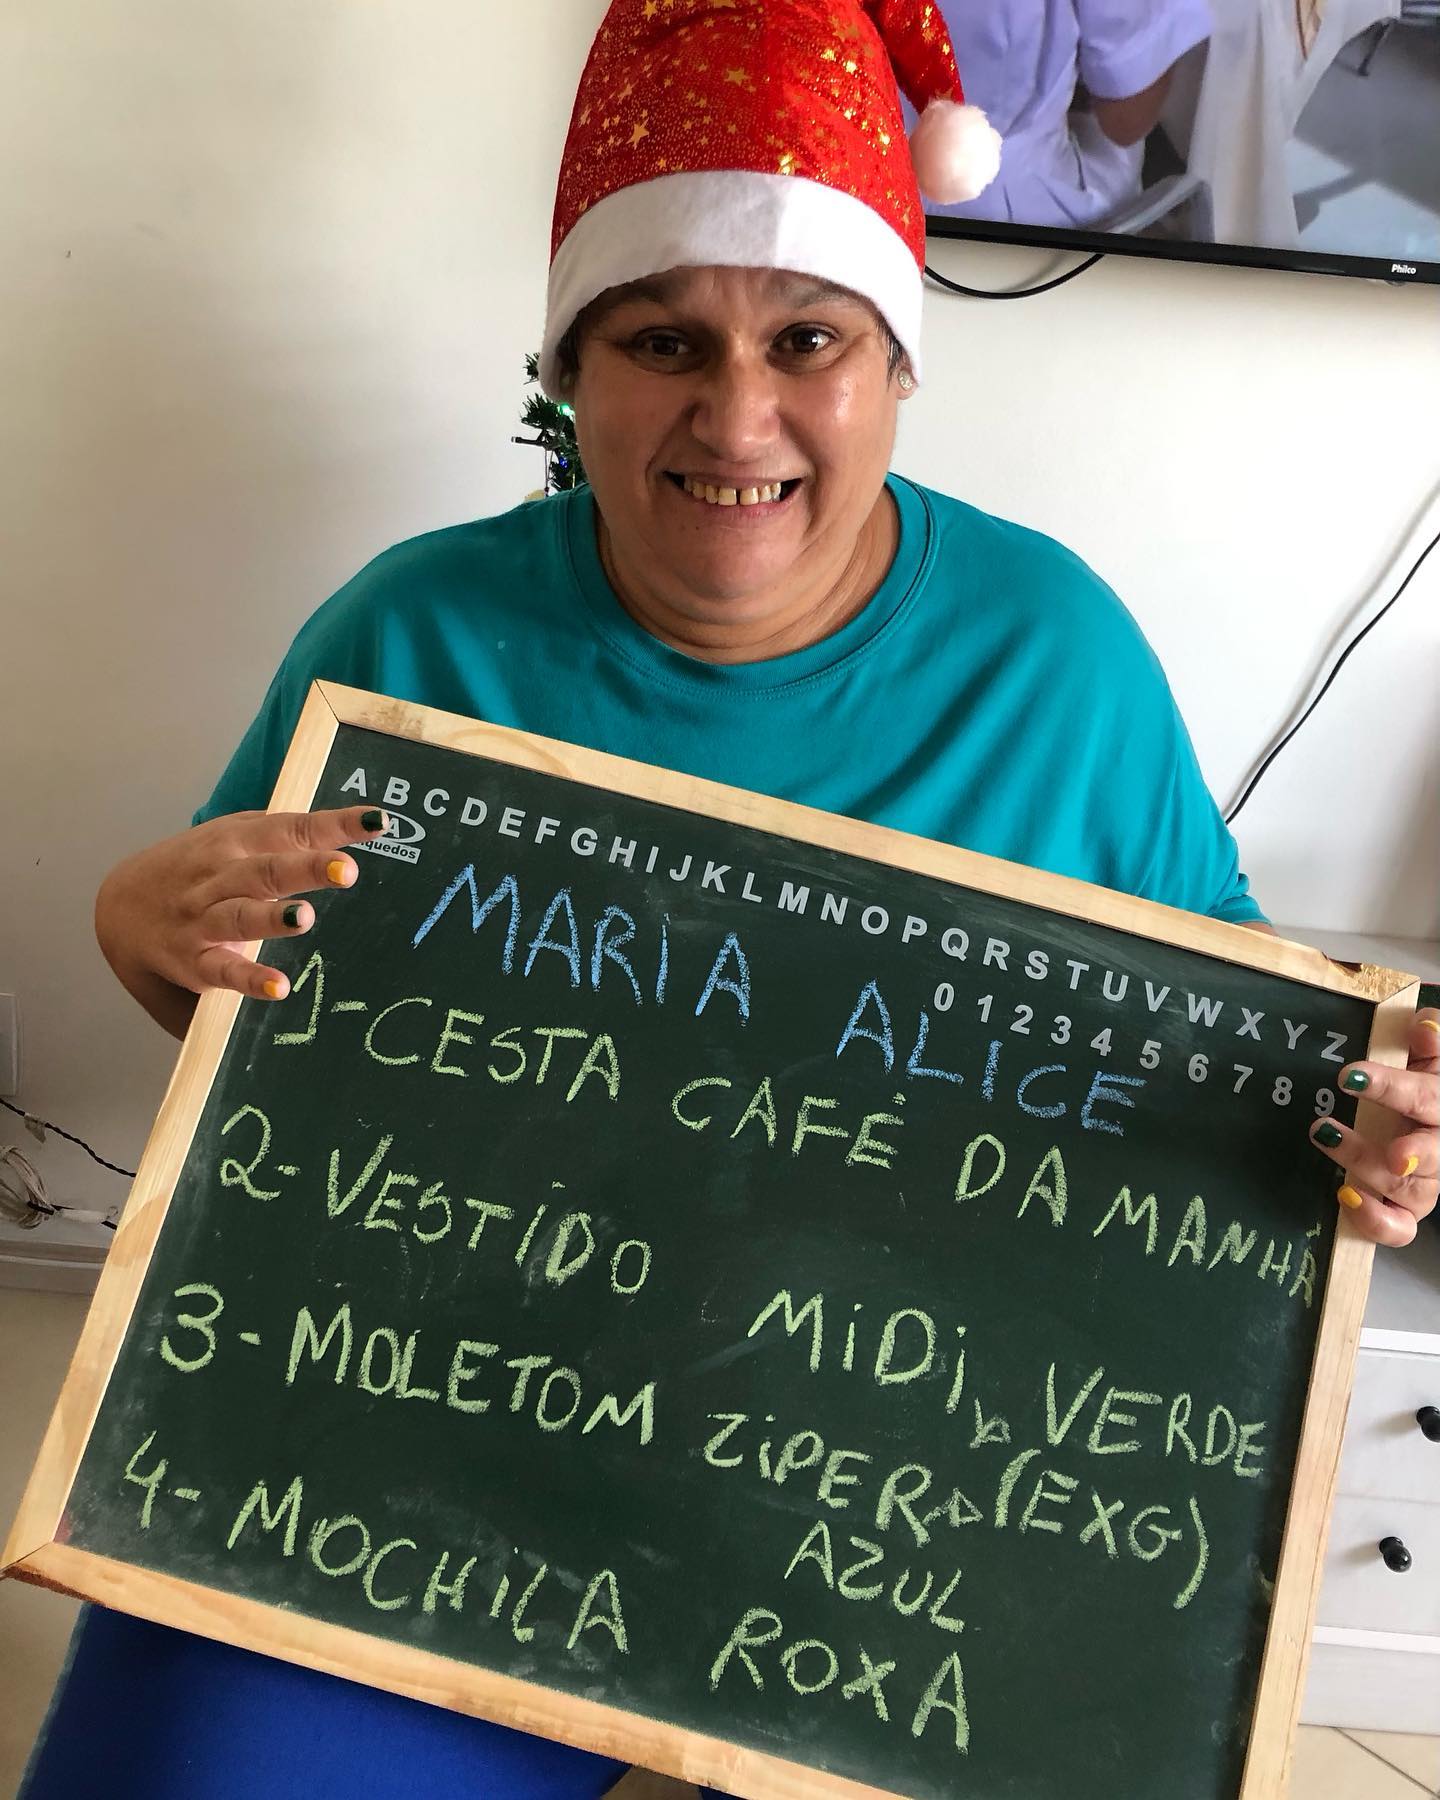 Philco
A B C D E F G H I J K L M N O P Q R S T U V W X Y Z
0 1 2 3 4 5 6 7 8 9
MARIA ALICE
1- CESTA CAFÉ DA MANHÃ
2- VESTIDO MIDI VERDE
3- MOLETOM ZIPER (EXG)
AZUL
4- MOCHILA ROXA